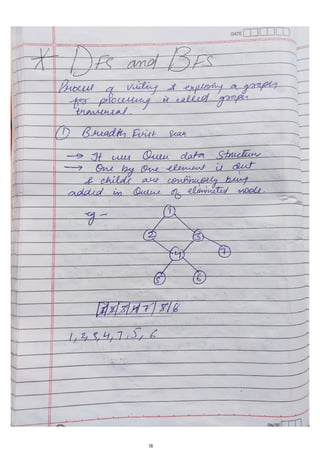 DATE
* DFS and BFS
Process of visiting & exploring a graph
for processing is called graph
traversal.
① Breadth First Scan
→ It uses Queue data Structure
→ One by One element is Out
& childs are continuously being
added in Queue of eliminated node.
eg -
1
2 3
4 7
5 6
1 2 3 4 7 5 6
1, 2, 3, 4, 7, 5, 6
PAGE
10